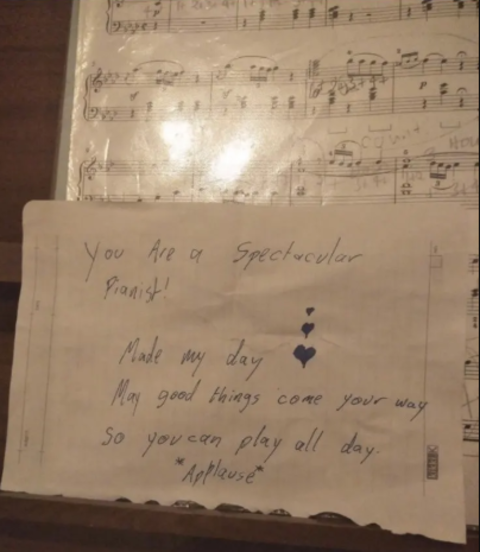 You Are a Spectacular
Pianist!
Made my day
May good things come your way
So you can play all day.
*Applause*